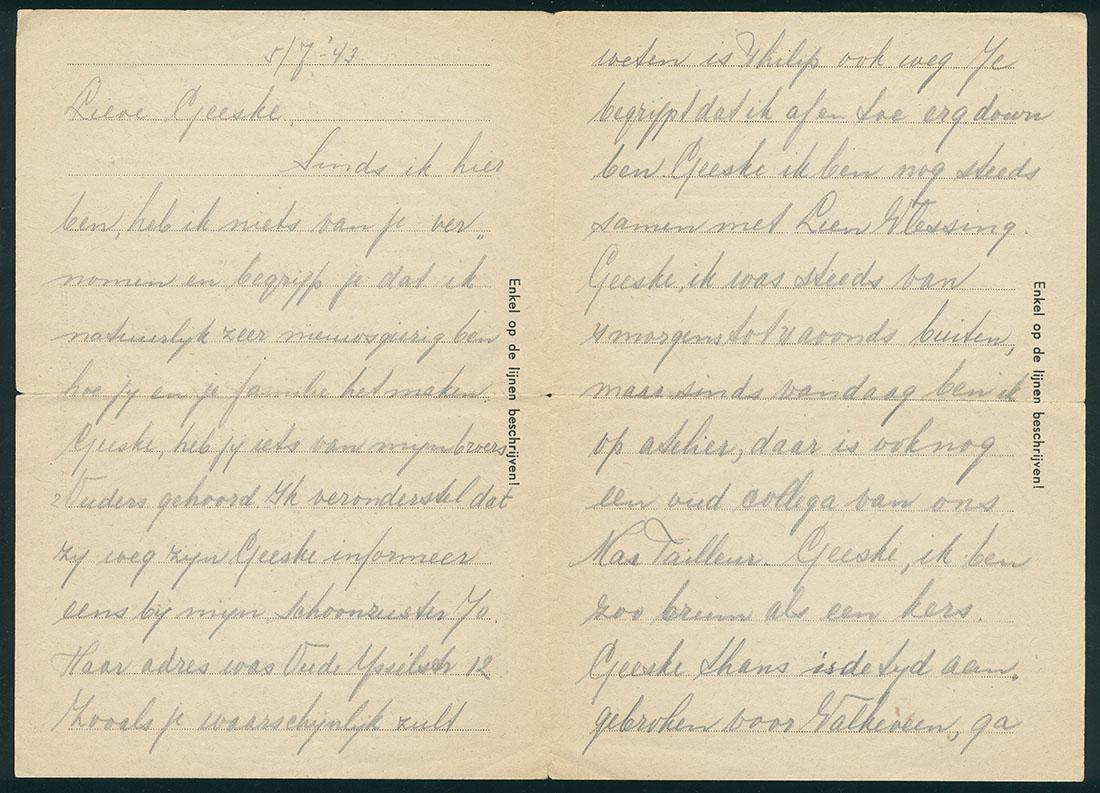 5/7-'43.
Lieve Geeske.
Sinds ik hier
ben, heb ik niets van je ver„
nomen en begrijp je dat ik
natuurlijk zeer nieuwsgierig ben
hoe jy en je familie het maken.
Geeske, heb jy iets van mijn broers
+ Ouders gehoord. Ik veronderstel dat
zy weg zyn Geeske informeer
eens by mijn schoonzuster Jo.
Haar adres was Oude Ysselstr 12
Zooals je waarschijnlyk zult
Enkel op de lijnen beschrijven!
weten is Philip ook weg Je
begrijpt dat ik af en toe erg down
ben. Geeske ik ben nog steeds
samen met Lien Vlessing.
Geeske, ik was steeds van
's morgens tot 's avonds buiten,
maar sinds vandaag ben ik
op atelier, daar is ook nog
een oud collega van ons
Nar Tailleur. Geeske, ik ben
zoo bruin als een kers.
Geeske thans is de tyd aan„
gebroken voor Valkeveen, ga
Enkel op de lijnen beschrijven!